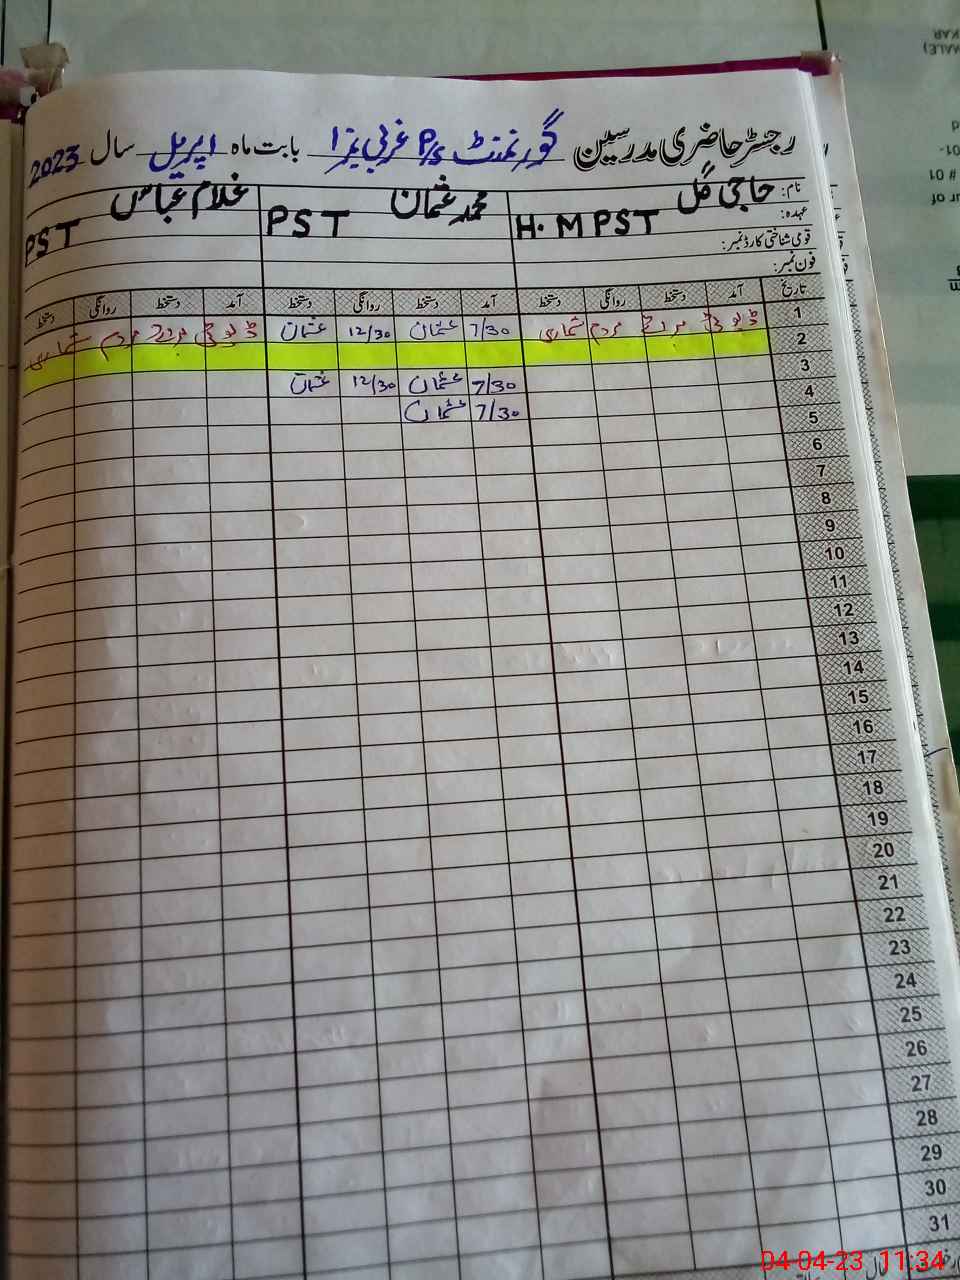 رجسٹر حاضری مدرسین گورنمنٹ P/s غربی بابت ماہ اپریل سال 2023
نام: حاجی گل محمد عثمان غلام عباس
عہدہ: H.M PST PST PST
قومی شناختی کارڈ نمبر:
فون نمبر:
تاریخ آمد دستخط روانگی دستخط آمد دستخط روانگی دستخط آمد دستخط روانگی دستخط
1 ڈیوٹی مردم شماری 7/30 عثمان 12/30 عثمان ڈیوٹی مردم شماری
2
3 7/30 عثمان 12/30 عثمان
4 7/30 عثمان
5
6
7
8
9
10
11
12
13
14
15
16
17
18
19
20
21
22
23
24
25
26
27
28
29
30
31
04-04-23 11:34